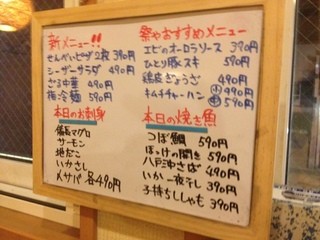 新メニュー!!
せんべいピザ2枚 390円
シーザーサラダ 490円
ざる中華 490円
梅冷麺 590円
本日のお刺身
備長マグロ
サーモン
地だこ
いかさし
〆サバ 各490円
おすすめメニュー
エビのオーロラソース 390円
ひとり豚スキ 590円
鶏皮ぎょうざ 490円
キムチチャーハン 小490円
大590円
本日の焼き魚
つぼ鯛 590円
ほっけの開き 590円
八戸沖さば 490円
いか一夜干し 390円
子持ちししゃも 390円